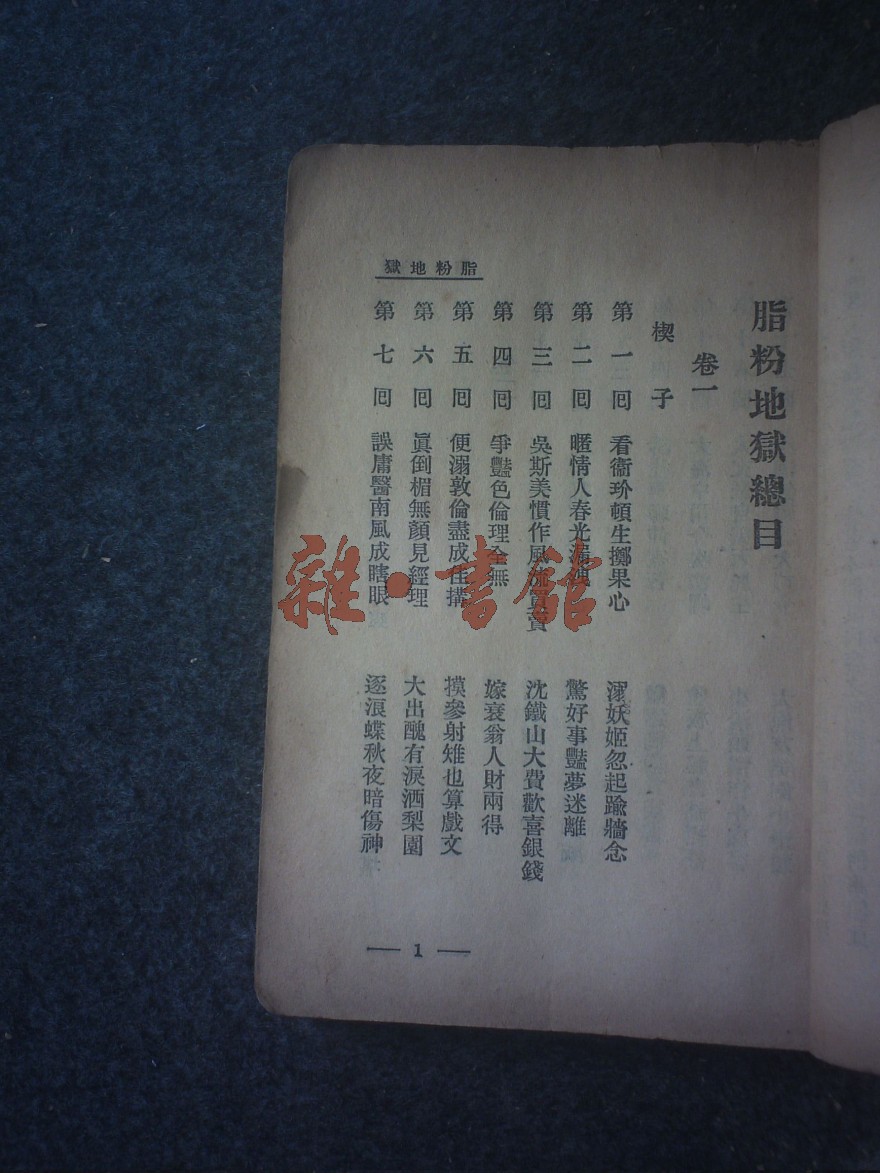 脂粉地獄總目
卷一
楔子
第一回 看衞玠頓生擲果心 溺妖姬忽起踰牆念
第二回 暱情人春光 驚好事豔夢迷離
第三回 吳斯美慣作風流買賣 沈鐵山大費歡喜銀錢
第四回 爭豔色倫理全無 嫁衰翁人財兩得
第五回 便溺敦倫盡成 摸參射雉也算戲文
第六回 眞倒楣無顏見經理 大出醜有淚洒梨園
第七回 誤庸醫南風成瞎眼 逐浪蝶秋夜暗傷神
脂粉地獄
1
雜·書館